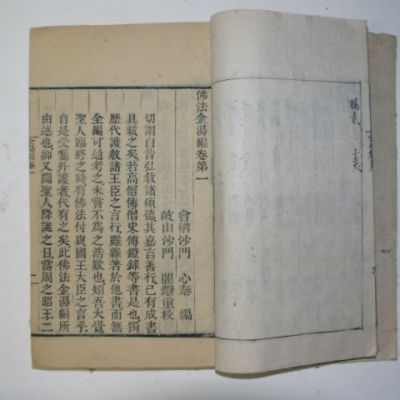 佛法金湯編卷第一
會稽沙門 心泰 編
岐山沙門 闇鐙重校
切謂自昔弘敎諸碩德其嘉言善行已有成書
具載之矣若高僧傳僧史傳燈錄等書是也獨
歷代護敎諸王臣之言行雖雜著於他書而無
全編可通考之未嘗不為之浩歎也矧吾大覺
聖人臨終之時有佛法付與國王大臣之言乎
自是受囑外護者代有之矣此佛法金湯編所
由述也抑又聞聖人降誕之日當周之昭王二